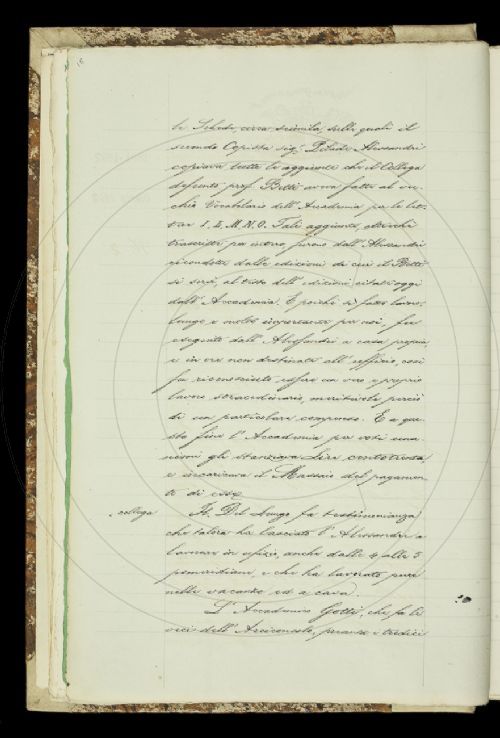 le Schede, circa seimila, sulle quali il
secondo Copista sig.r Pilade Alessandri
copiava tutte le aggiunte che il Collega
defunto prof. Betti aveva fatte al vec-
chio Vocabolario dell'Accademia per le let-
tere I. L. M. N. O. Tali aggiunte, oltreché
trascritte per intero, furono dall'Alessandri
ricondotte dalle edizioni di cui il Betti
si servì, al testo dell'edizioni citate oggi
dall'Accademia. E poiché sì fatto lavoro,
lungo e molto importante per noi, fu
eseguito dall'Alessandri a casa propria
e in ore non destinate all'uffizio, così
fu riconosciuto essere un vero e proprio
lavoro straordinario, meritevole perciò
di un particolare compenso. E a que-
sto fine l'Accademia per voti una-
nimi gli stanziava Lire centotrenta
e incaricava il Massaio del pagamen-
to di esse.
collega Is. Del Lungo fa testimonianza
che talora ha lasciato l'Alessandri a
lavorare in ufizio, anche dalle 4 alle 5
pomeridiane, e che ha lavorato pure
nelle vacanze ed a casa.
L'Accademico Gotti, che fa le
veci dell'Arciconsolo, presenta i tredici